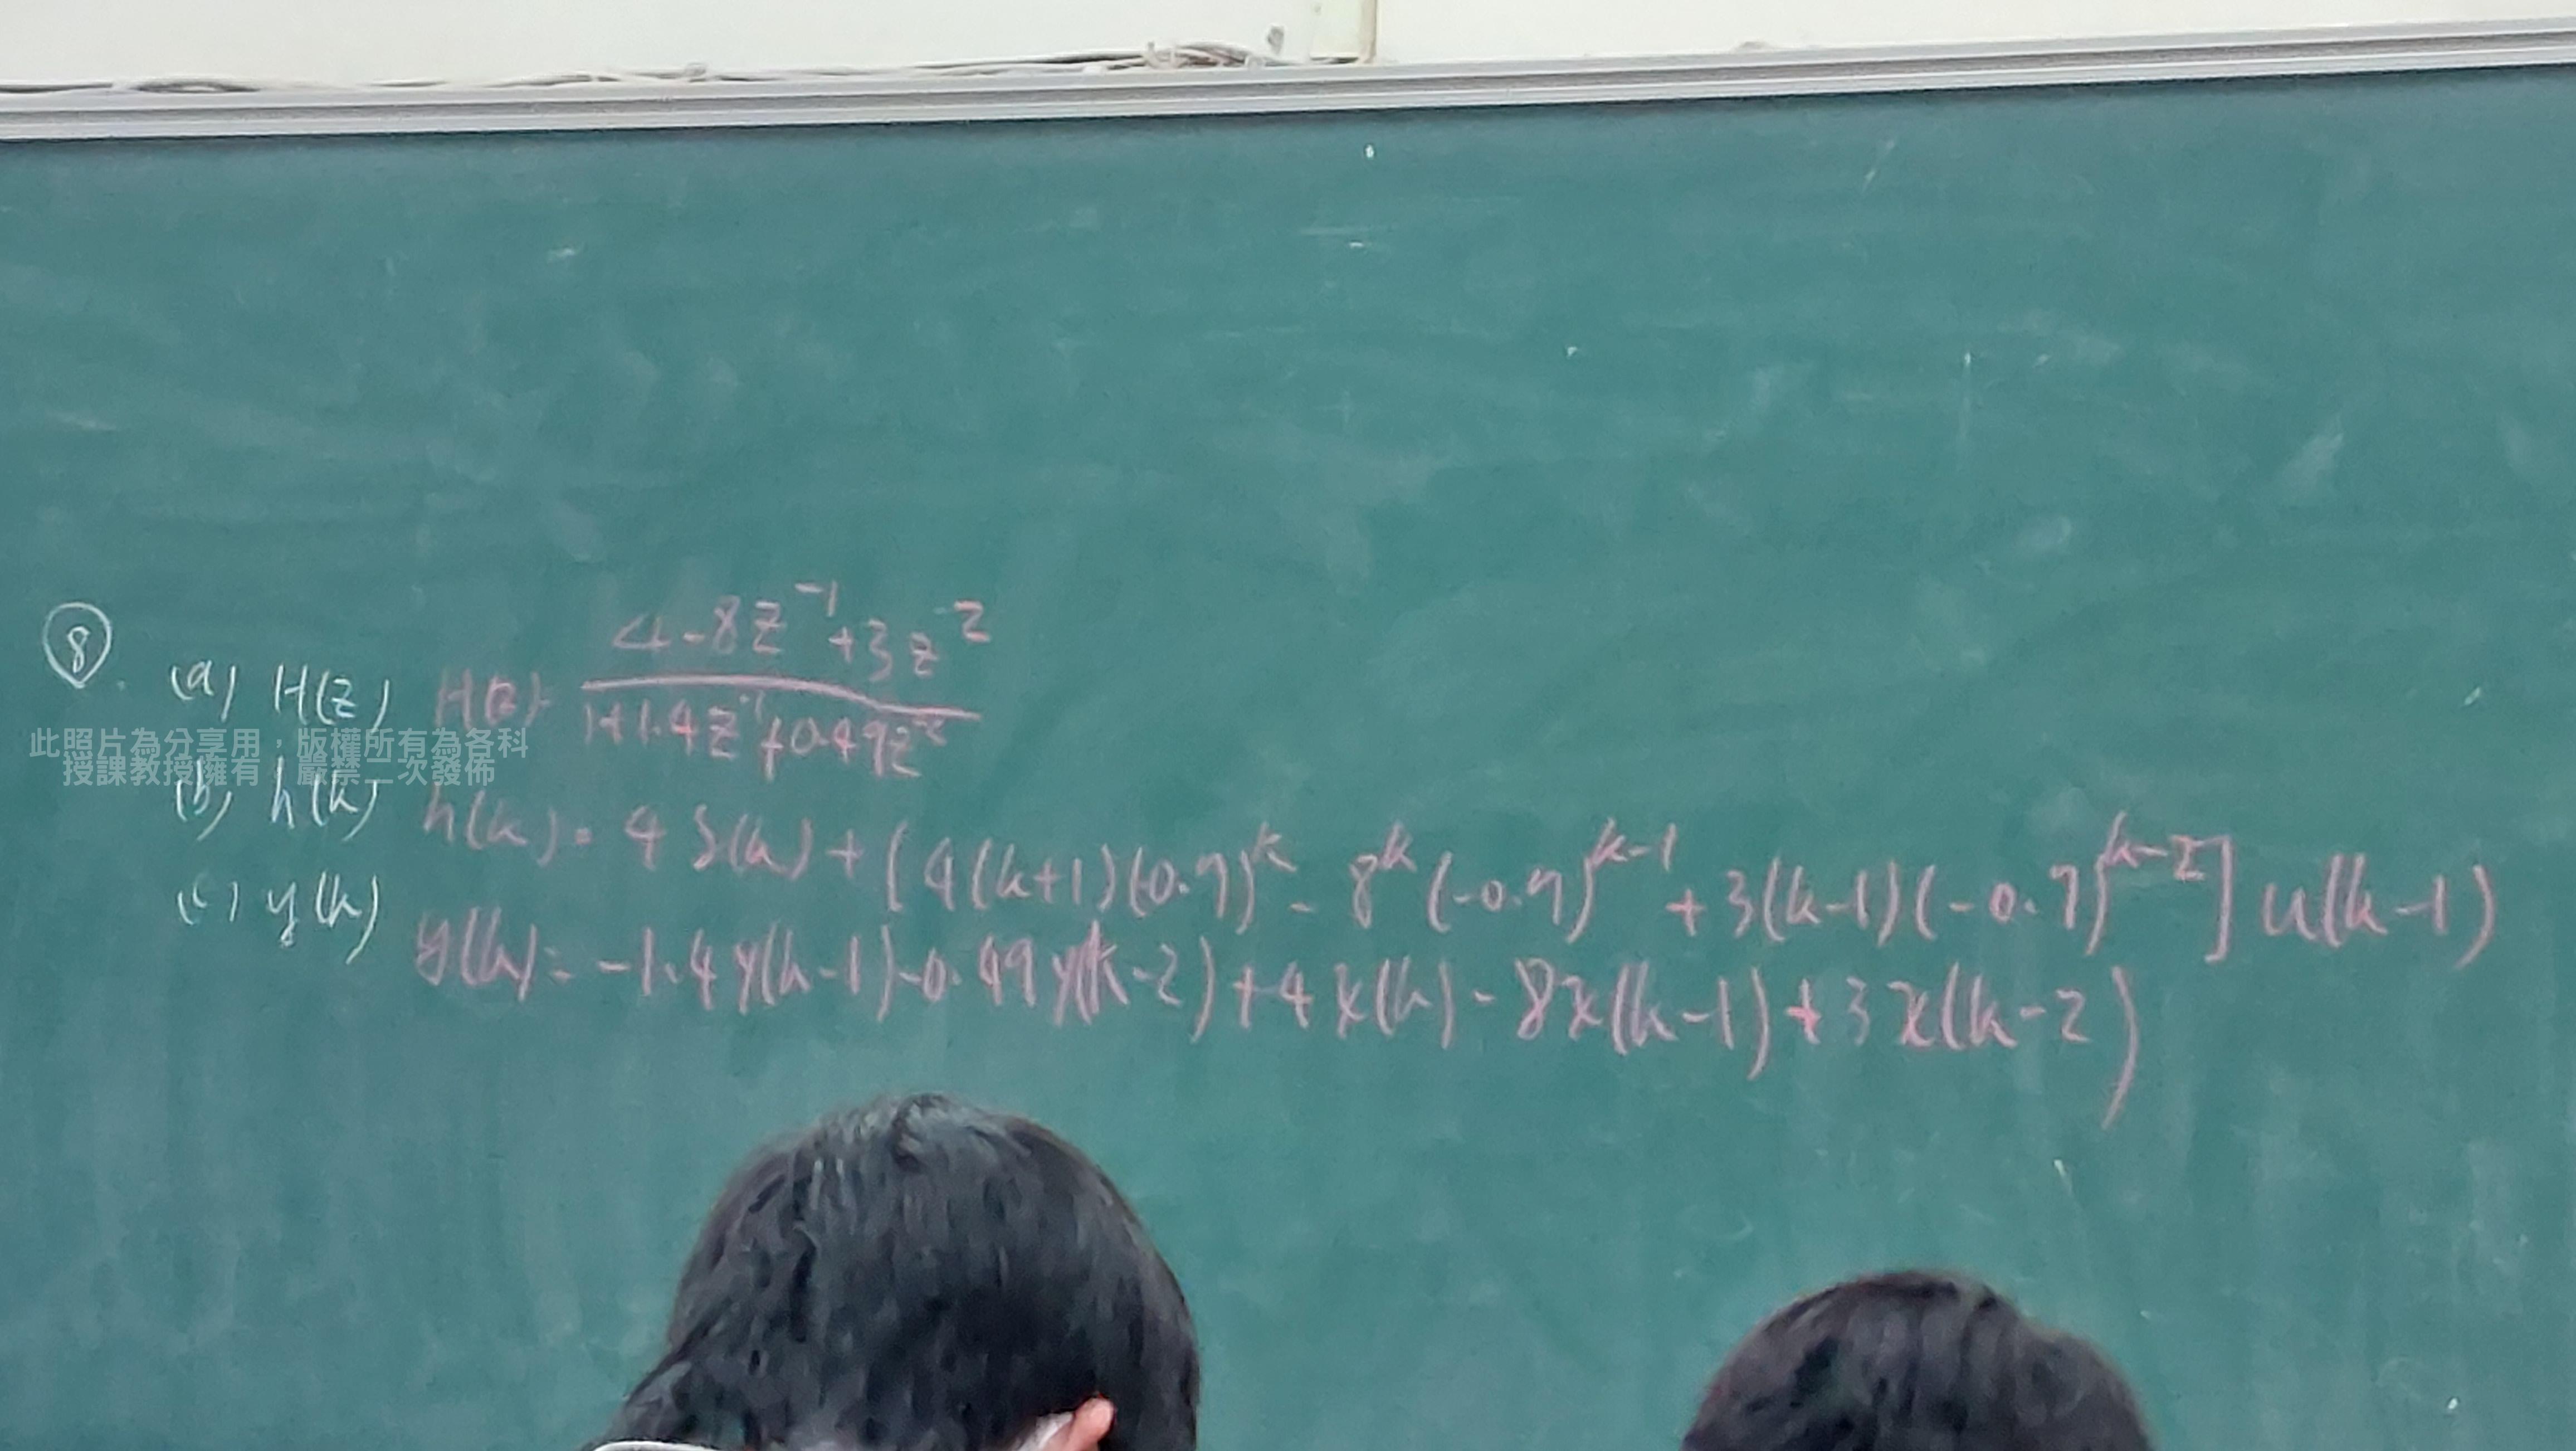 ⑧. (a) H(z) H(z) = \frac{4-8z^{-1}+3z^{-2}}{1+1.4z^{-1}+0.49z^{-2}}
此照片為分享用；版權所有為各科
授課教授擁有；嚴禁二次發佈
(b) h(k) h(k) = 4δ(k) + [4(k+1)(-0.7)^k - 8^k(-0.7)^{k-1} + 3(k-1)(-0.7)^{k-2}] u(k-1)
(c) y(k) y(k) = -1.4y(k-1) - 0.49y(k-2) + 4x(k) - 8x(k-1) + 3x(k-2)